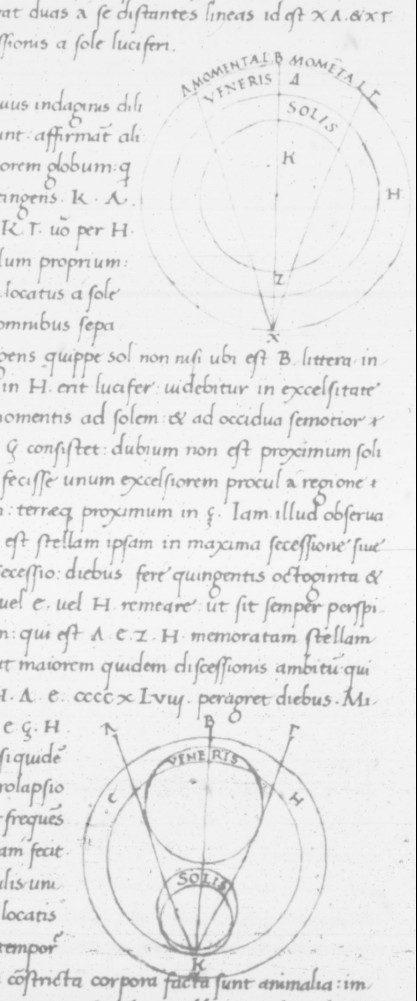 at duas a se distantes lineas id est X Λ. & X Γ
ssionis a sole luciferi.
A MOMENTAL B MOMĒTAL Γ
VENERIS Δ
SOLIS
K
H
Z
X
uius indaginis dili
unt: affirmāt ali
orem globum: q
tingens. K. Λ.
K Γ. uō per H.
lum proprium:
locatus a sole
omnibus sepa
pens quippe sol non nisi ubi est B. littera. in
in H. erit lucifer: uidebitur in excelsitate
omentis ad solem: & ad occidua semotior
consistet: dubium non est proximum soli
fecisse unum excelsiorem procul a regione
: terræq proximum in ς. Iam illud obserua
est stellam ipsam in maxima secessione siue
ecessio: diebus fere quingentis octoginta &
uel e. uel H. remeare: ut sit semper perspi
: qui est Λ e. Z. H. memoratam stellam
t maiorem quidem discessionis ambitū qui
H. Λ. e. ccccx Lviij. peragret diebus. Mi
e ς. H
Λ B Γ
VENERIS
C H
SOLIS
K
siquidē
rolapsio
frequēs
am fecit
lis uni
locatis
tempor
cōstricta corpora facta sunt animalia: im